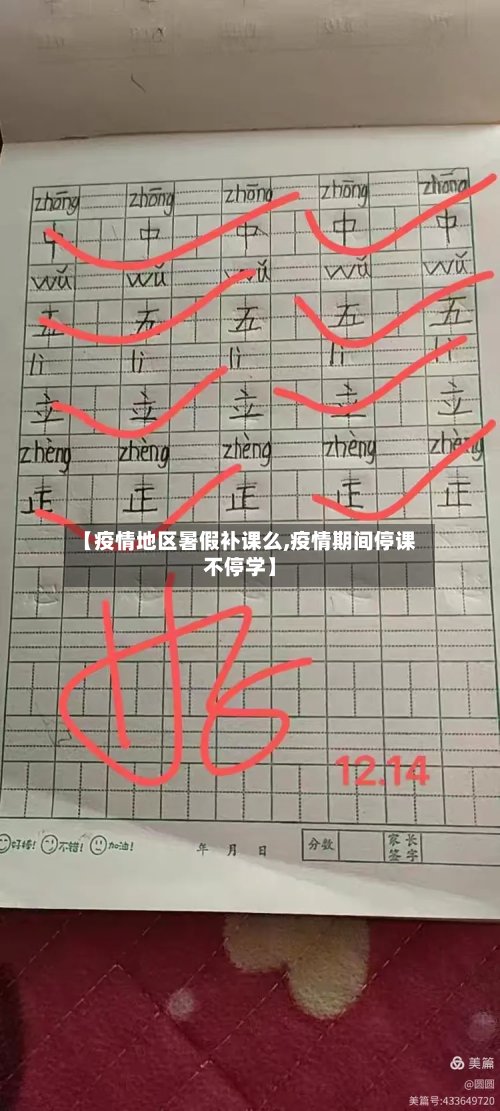 zhōng zhōng zhōng zhōng zhōng
中 中 中 中 中
wǔ wǔ wǔ wǔ wǔ
五 五 五 五 五
lì lì lì lì lì
立 立 立 立 立
zhèng zhèng zhèng zhèng zhèng
正 正 正 正 正
【疫情地区暑假补课么,疫情期间停课
不停学】
12.14
好棒! 不错! 加油! 年 月 日 分数 家长签字
美篇
@圆圆
美篇号:433649720